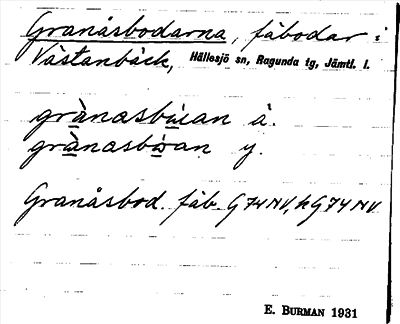 Granåsbodarna, fäbodar i
Västanbäck, Hällesjö sn, Ragunda tg, Jämtl. l.
grànasbùan ä.
grànasbùan y.
Granåsbod. fäb. G74NV, hG74NV
E. BURMAN 1931